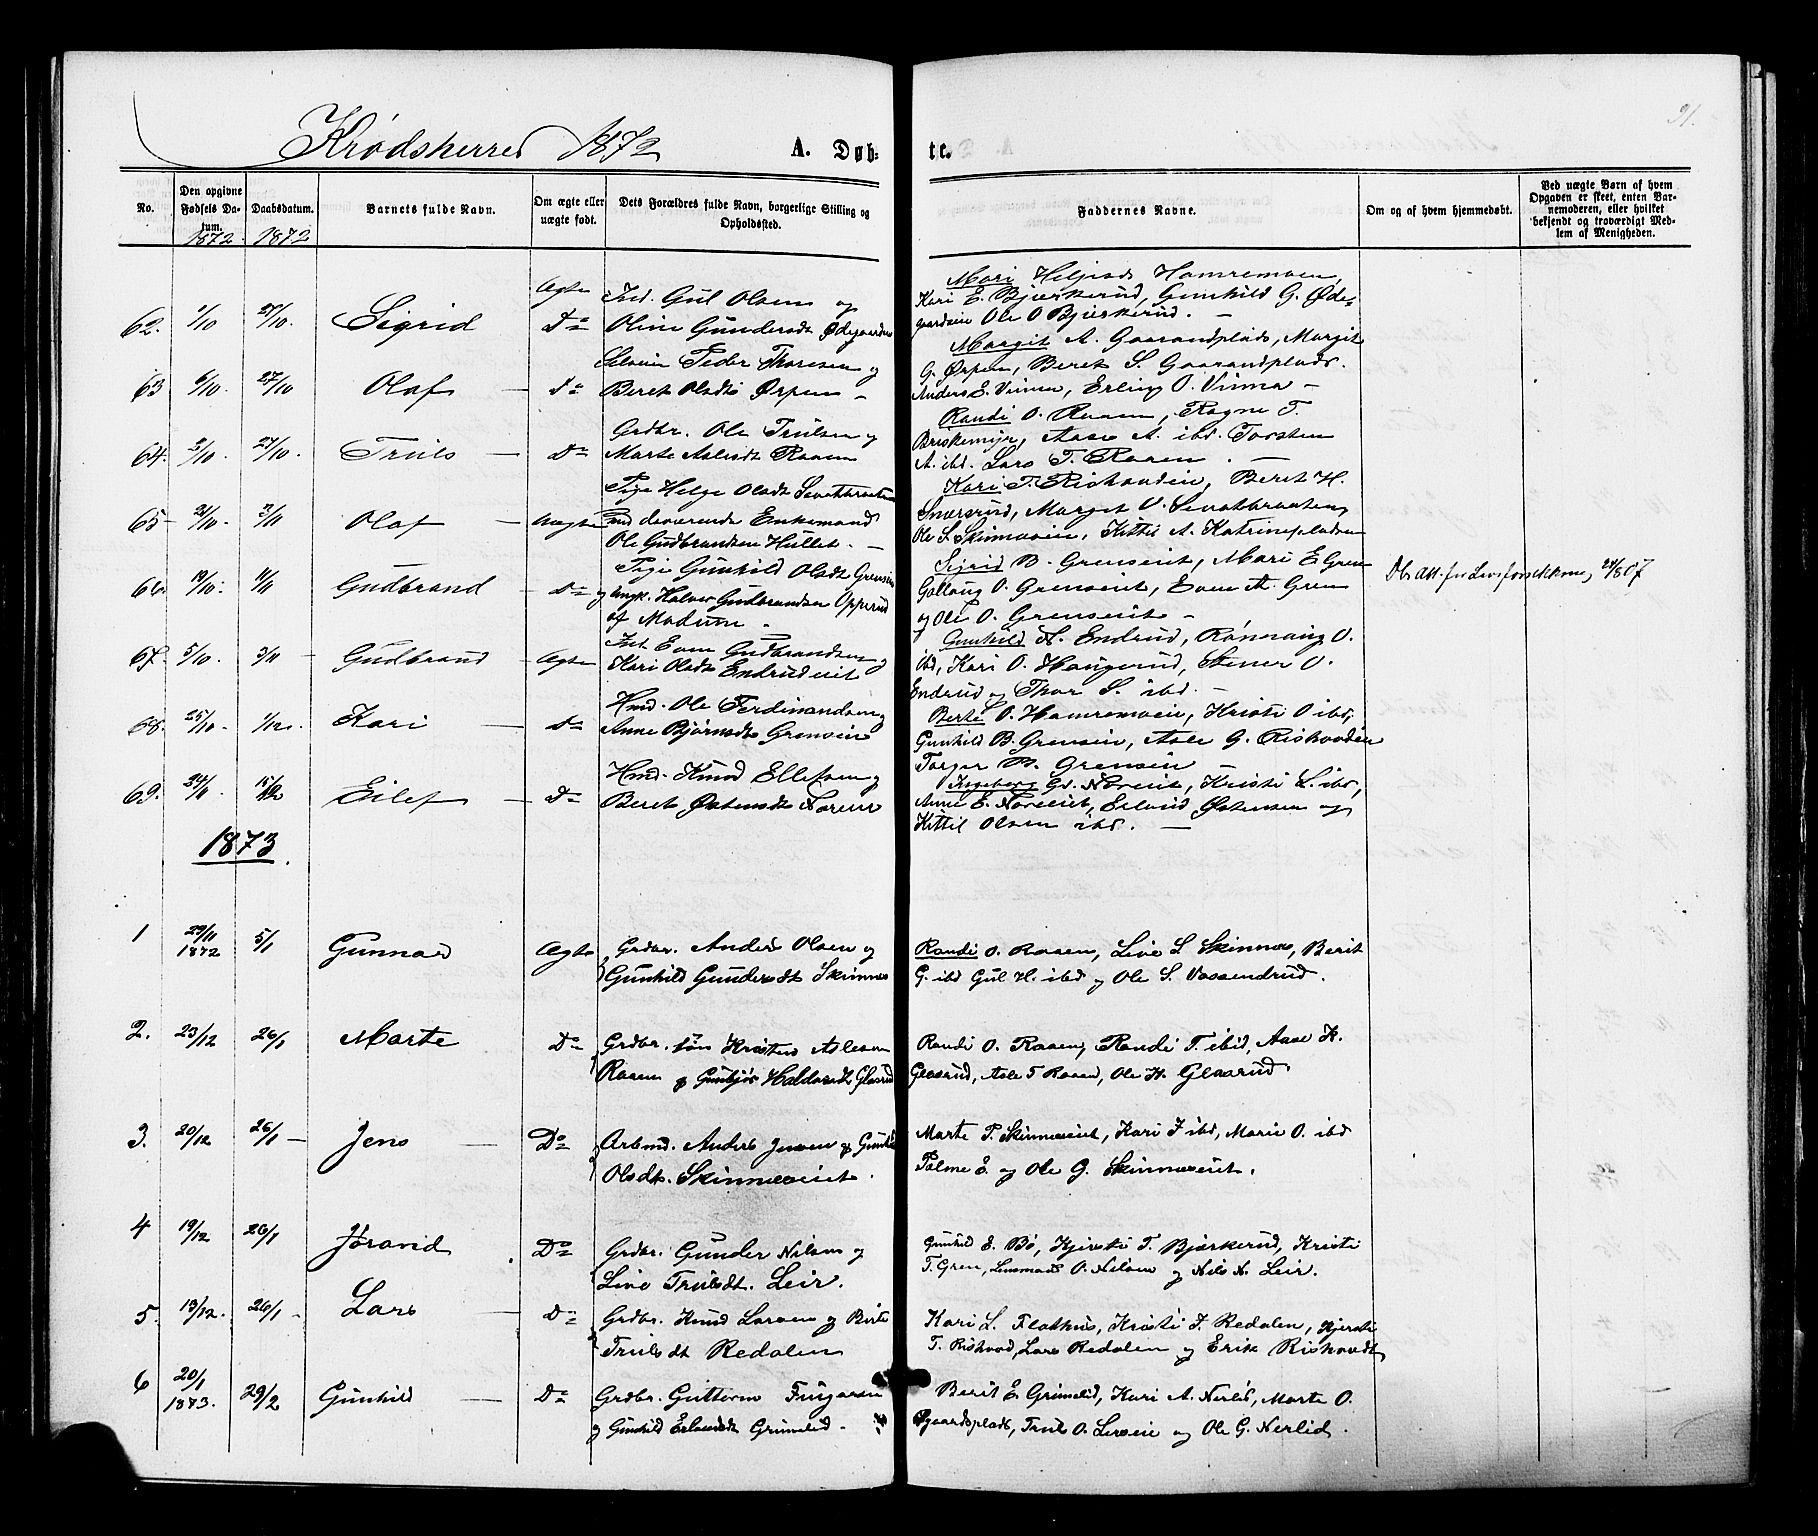 91.
Krødsherred 1872 A. Døb-
te.
No.
Den opgivne Fødsels Datum.
1872.
Daabsdatum.
1872
Barnets fulde Navn.
Om ægte eller uægte født.
Dets Forældres fulde Navn, borgerlige Stilling og Opholdssted.
Faddernes Navne.
Om og af hvem hjemmedøbt.
Ved uægte Børn af hvem Opgaven er skeet, enten Barnemoderen, eller hvilket bekjendt og troværdigt Medlem af Menigheden.
62. 1/10 27/10. Sigrid Ægte Do
Gul Olsen og
Oline Gundersdt Ødegaarden
Mari Helgesd Hamremoen,
Kari E. Bjerkerud, Gunhild G. Øde-
gaardseie Ole O Bjerkerud. -
63 6/10. 27/10 Olaf - Do
Peder Thoresen og
Beret Olsdt Ørpen -
Margit A. Gaarandplads, Margit
G. Ørpen, Beret S. Gaarandplads.
Anders E. Vinna, Erling O. Vinna -
64. 2/10 27/10. Truls - Do
Grdbr. Ole Trulsen og
Marte Aslesdt Raaen
Randi O. Raaen, Ragne T.
Briskemyr, Aase A. ibd. Torsten
A. ibd. Lars T. Raaen. -
65- 21/10. 3/11 Olaf - Uægte
Pige Helge Olsdt
med deværende Enkemand
Ole Gudbrandsen Hullet. -
Kari T. Riskaudeie, Beret H.
Snersrud, Margit O.
Ole S. Skinneseie, Kittil A. Katrineplads
66. 19/10. Gudbrand - Do
Pige Gunhild Olsdt Grenseie
og ungk. Halvor Gudbrandsen Opperud
af Modum -
Sigrid B. Grenseiet, Mari E Gren
Gollaug O. Grenseiet, Even A. Gren
og Ole O. Grenseiet -
24/8 07
67. 5/10. 3/11 - Gudbrand - Ægte
Even Gudbrandsen og
Kari Olsdt Endrudeiet
Gunhild H. Endrud, Rønnaug O.
ibd, Kari O. Haugerud, Stener O.
Endrud og Thor S. ibd. -
68. 25/10. 1/12. Kari - Do
Hmd. Ole Ferdinandsen og
Anne Bjørnsdt Grenseie
Berte O. Hamremoeie, Kristi O ibd,
Gunhild B. Grenseie, Asle G. Riskaudeie
Torger B. Grenseie -
69. 24/11 15/12 Eilef - Do
Hmd. Knud Ellefsen og
Beret Østensdt Noreie
Ingeborg Noreiet, Kristi L. ibd,
Anne E. Noreiet, Erland Østensen og
Kittil Olsen ibd. -
1873
1 29/11 1872 5/1 Gunnar Ægte
Grdbr. Anders Olsen og
Gunhild Gundersdt Skinnes
Randi O. Raaen, Live L Skinnes, Berit
G. ibd Gul H. ibd og Ole S. Vassendrud.
2. 23/12 26/1 Marte Do
Grdbr. søn Kristen Aslesen
Raaen & Gunbjør Haldorsdt Glesrud
Randi O. Raaen, Randi T. ibid, Aase K.
Glesrud, Asle T Raaen, Ole H. Glesrud
3. 20/12 26/1 - Jens - Do
Arbmd. Anders Jensen & Gunhild
Olsdt. Skinneseiet.
Marte T. Skinneseiet, Kari J ibd, Marie O. ibd
Palme E. og Ole G. Skinneseiet.
4 19/12 26/1 Jøravid Do
Grdbr. Gunder Nilsen og
Live Trulsdt. Leir.
Gunhild E. Bø, Kjersti T. Bjerkerud, Kristi
T. Gren, Lensmand O. Nilsen og Nils N. Leir.
5. 13/12. 26/1 - Lars - Do
Grdbr. Knud Larsen og Birte
Trulsdt Redalen
Kari L. Flathus, Kristi T. Redalen, Kjersti
T. Riskaud, Lars Redalen og Erik Riskaudt
6 20/1 1873. 29/2 Gunhild - Do
Grdbr. Guttorm Fingarsen
og Gunhild Erlandsdt Grimelid -
Berit E Grimelid, Kari A. Nerlid, Marte O.
Øgaardsplads, Truls O. Leveie og Ole G. Nerlid.